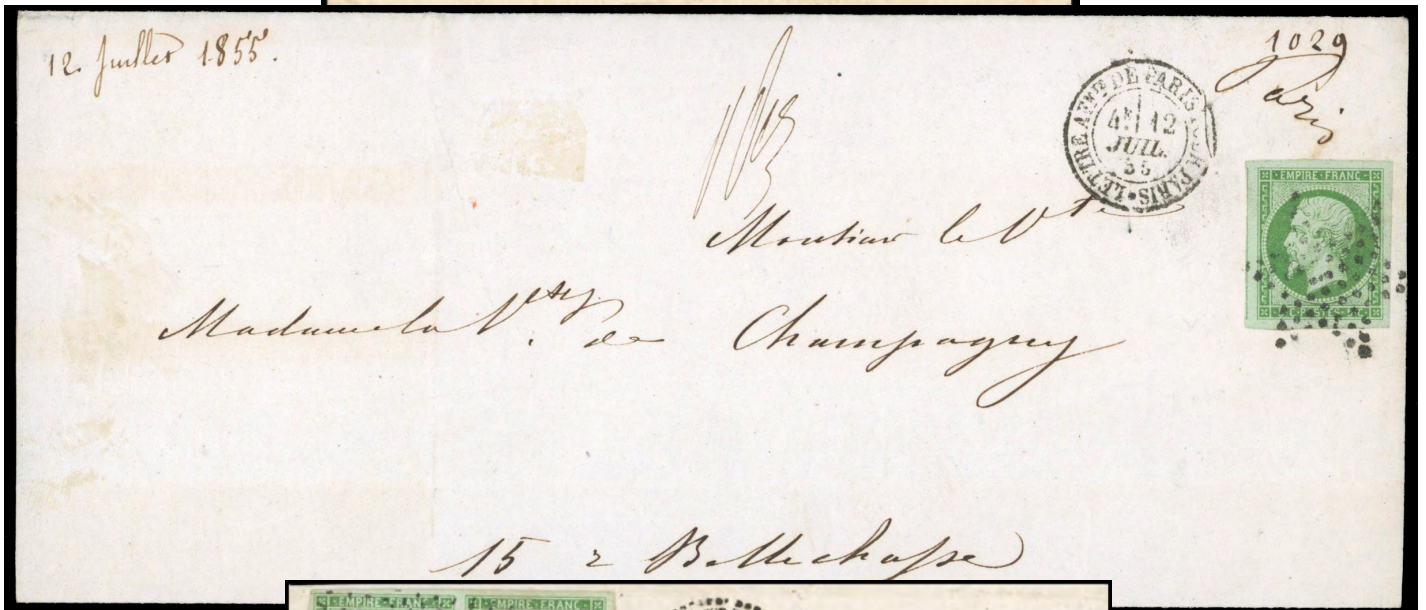 12. Juillet 1855.
1029
Paris
LETTRE AFF^te DE PARIS POUR PARIS
4^E 12
JUIL.
55
EMPIRE FRANC
5 C POSTES 5 C
Monsieur le V^te
Madame la V^tesse de Champagny
15 r Bellechasse
EMPIRE FRANC EMPIRE FRANC